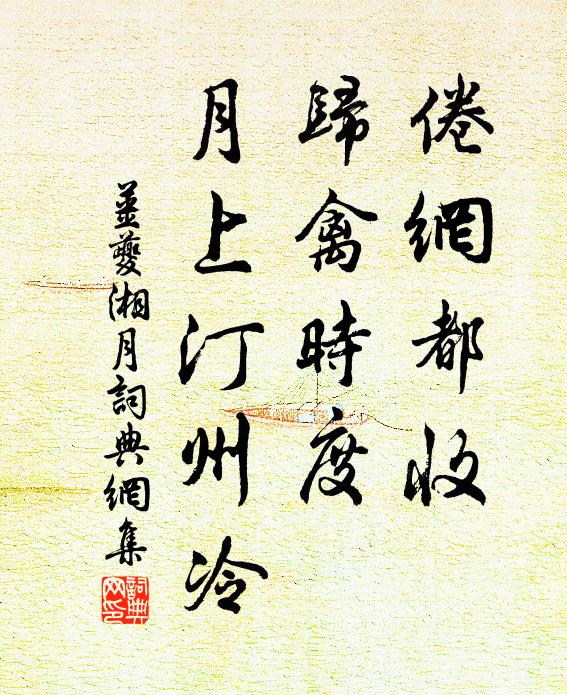 倦網都收
歸禽時度
月上汀州冷
姜夔湘月詞典網集
詞典網印